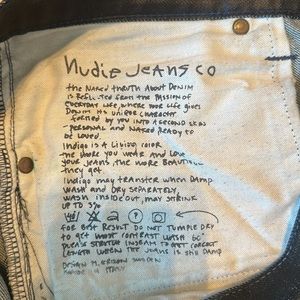 nudie Jeans co
the Naked truth About Denim
is Reflected from the Passion of
everyday Life, where your Life gives
Denim its unique character
formed by you into a second skin
personal and Naked Ready to
be Loved.
Indigo is a Living color
the more you wear and Love
your Jeans the more Beautiful
they get
Indigo may transfer when Damp
wash and Dry separately,
wash inside out, may shrink
up to 3%
for Best Result do not tumble Dry
to get most contrast wash 60°
please stretch inseam to get correct
Length when the Jeans is still Damp
Design M. Erixon Sweden
made in Italy